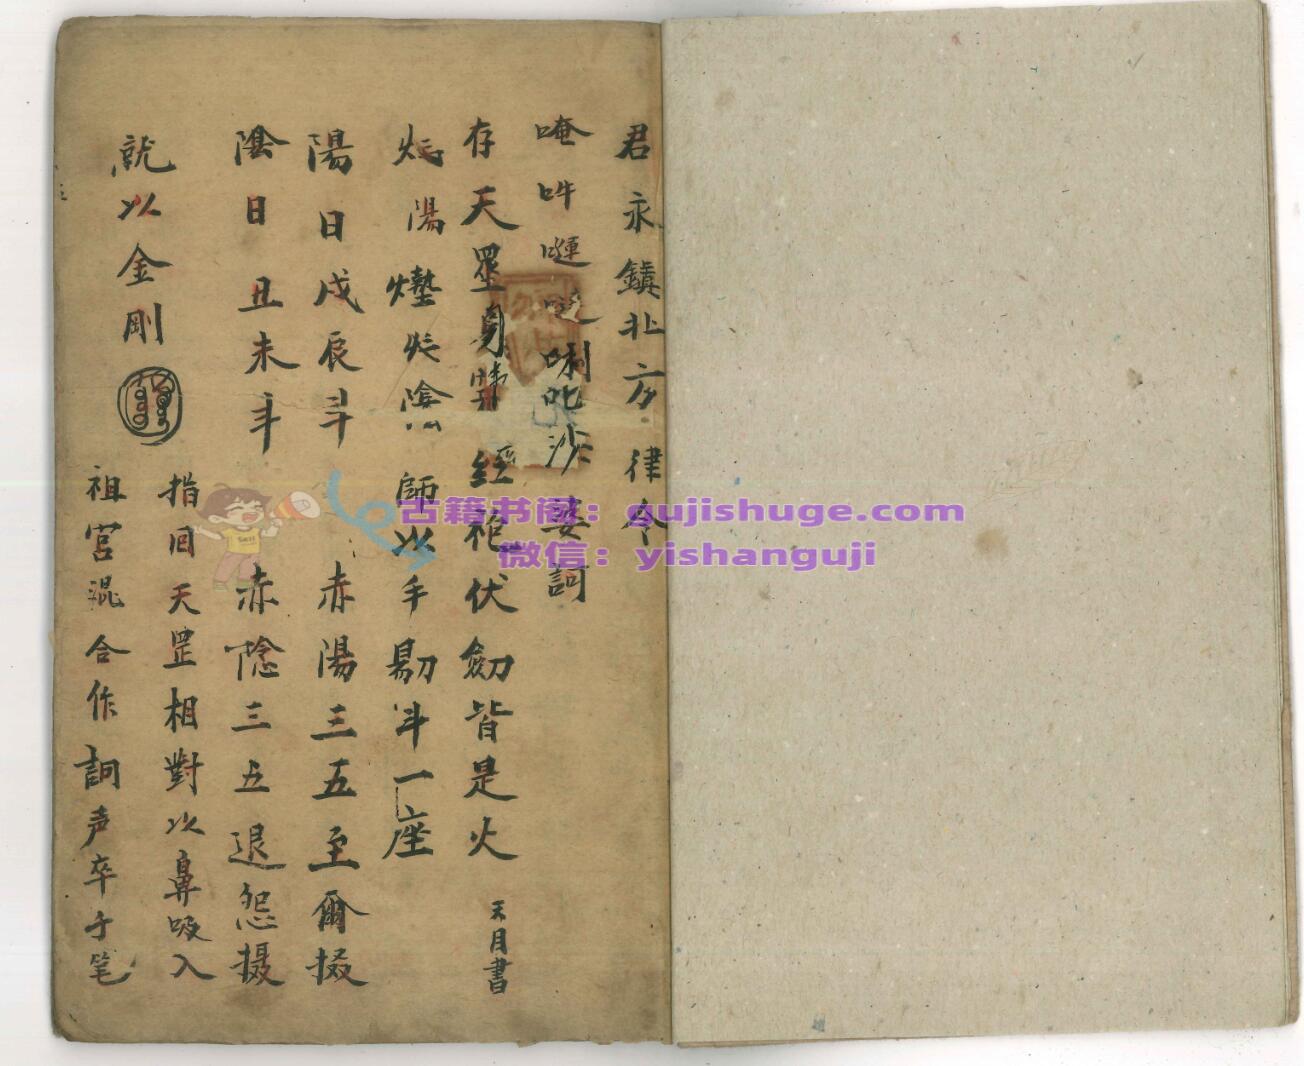 君永鎮北方律令
唵吽𠺁噠唎吒沙婆訶
存天罡身 經袍伏劍皆是火
天月書
陽 陰 師以手剔斗一座
陽日戌辰斗 赤陽三五至爾掇
陰日丑未斗 赤陰三五退怨摄
就以金剛
指囙天罡相對以鼻吸入
祖宮混合作訶声卒于笔
古籍书阁：gujishuge.com
微信：yishanguji